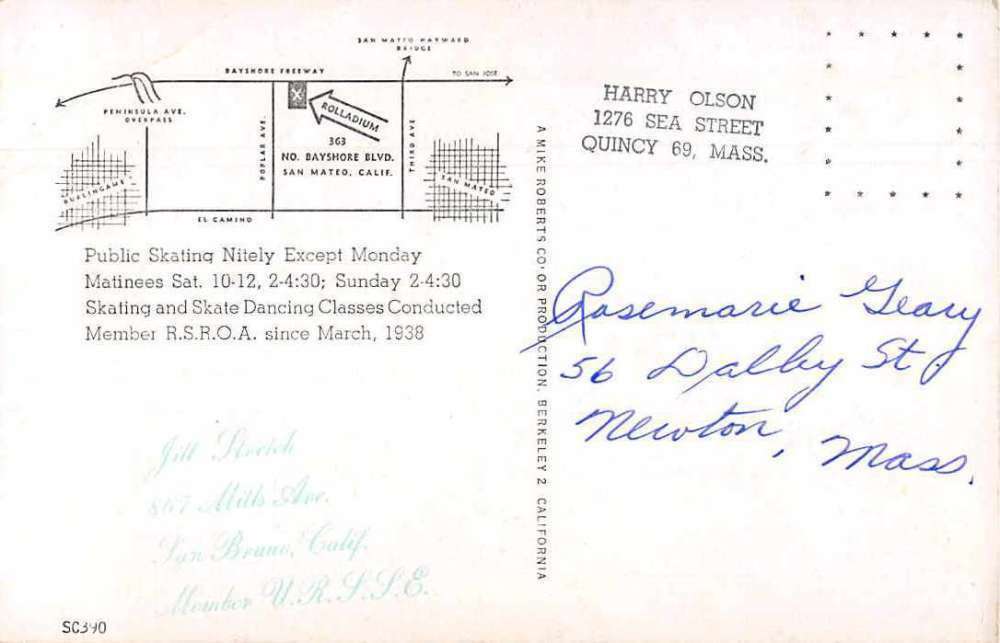 SAN MATEO HAYWARD
BRIDGE
BAYSHORE FREEWAY
TO SAN JOSE
PENINSULA AVE.
OVERPASS
ROLLADIUM
POPLAR AVE.
363
NO. BAYSHORE BLVD.
SAN MATEO, CALIF.
THIRD AVE
BURLINGAME
SAN MATEO
EL CAMINO
Public Skating Nitely Except Monday
Matinees Sat. 10-12, 2-4:30; Sunday 2-4:30
Skating and Skate Dancing Classes Conducted
Member R.S.R.O.A. since March, 1938
Jill
867 Mills Ave.
San Bruno, Calif.
Member U.R.S.S.E.
SC390
A MIKE ROBERTS CO'OR PRODUCTION, BERKELEY 2 CALIFORNIA
HARRY OLSON
1276 SEA STREET
QUINCY 69, MASS.
Rosemarie Geary
56 Dalby St.
Newton, Mass.